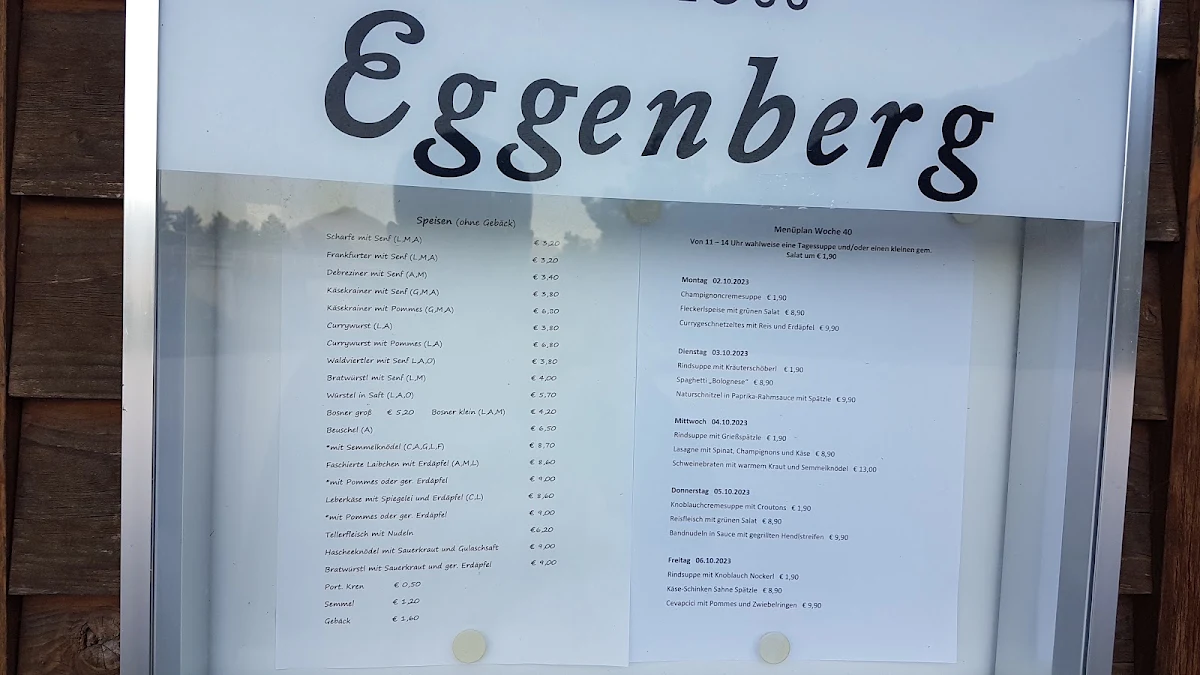 Eggenberg
Speisen (ohne Gebäck)
Scharfe mit Senf (L,M,A) € 3,20
Frankfurter mit Senf (L,M,A) € 3,20
Debreziner mit Senf (A,M) € 3,40
Käsekrainer mit Senf (G,M,A) € 3,80
Käsekrainer mit Pommes (G,M,A) € 6,80
Currywurst (L,A) € 3,80
Currywurst mit Pommes (L,A) € 6,80
Waldviertler mit Senf L,A,O) € 3,80
Bratwürstl mit Senf (L,M) € 4,00
Würstel in Saft (L,A,O) € 5,70
Bosner groß € 5,20 Bosner klein (L,A,M) € 4,20
Beuschel (A) € 6,50
*mit Semmelknödel (C,A,G,L,F) € 8,70
Faschierte Laibchen mit Erdäpfel (A,M,L) € 8,60
*mit Pommes oder ger. Erdäpfel € 9,00
Leberkäse mit Spiegelei und Erdäpfel (C,L) € 8,60
*mit Pommes oder ger. Erdäpfel € 9,00
Tellerfleisch mit Nudeln €6,20
Hascheeknödel mit Sauerkraut und Gulaschsaft € 9,00
Bratwürstl mit Sauerkraut und ger. Erdäpfel € 9,00
Port. Kren € 0,50
Semmel € 1,20
Gebäck € 1,60
Menüplan Woche 40
Von 11 – 14 Uhr wahlweise eine Tagessuppe und/oder einen kleinen gem.
Salat um € 1,90
Montag 02.10.2023
Champignoncremesuppe € 1,90
Fleckerlspeise mit grünen Salat € 8,90
Currygeschnetzeltes mit Reis und Erdäpfel € 9,90
Dienstag 03.10.2023
Rindsuppe mit Kräuterschöberl € 1,90
Spaghetti „Bolognese" € 8,90
Naturschnitzel in Paprika-Rahmsauce mit Spätzle € 9,90
Mittwoch 04.10.2023
Rindsuppe mit Grießspätzle € 1,90
Lasagne mit Spinat, Champignons und Käse € 8,90
Schweinebraten mit warmem Kraut und Semmelknödel € 13,00
Donnerstag 05.10.2023
Knoblauchcremesuppe mit Croutons € 1,90
Reisfleisch mit grünen Salat € 8,90
Bandnudeln in Sauce mit gegrillten Hendlstreifen € 9,90
Freitag 06.10.2023
Rindsuppe mit Knoblauch Nockerl € 1,90
Käse-Schinken Sahne Spätzle € 8,90
Cevapcici mit Pommes und Zwiebelringen € 9,90